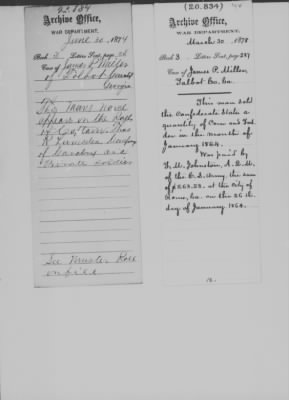 Archive Office,
WAR DEPARTMENT,
June 30, 1874
Book 2 Letters Sent, page
Case of James P. Miller
of Talbot County
Georgia
This mans name
appears on the Roll
of Capt
of and
Private Soldier
See Muster Roll
on file
(20.834)
Archive Office,
WAR DEPARTMENT,
March 30, 1878
Book 3. Letters Sent, page 287
Case of James P. Miller,
Talbot Co. Ga.
This man sold
the Confederate State a
quantity of Corn and Fod-
der in the months of
January 1864.
Was paid by
Johnston, A.Q.M.
of the C.S. Army, the sum
of $263.25. at the City of
Rome, Ga. on the 26 th
day of January 1864.